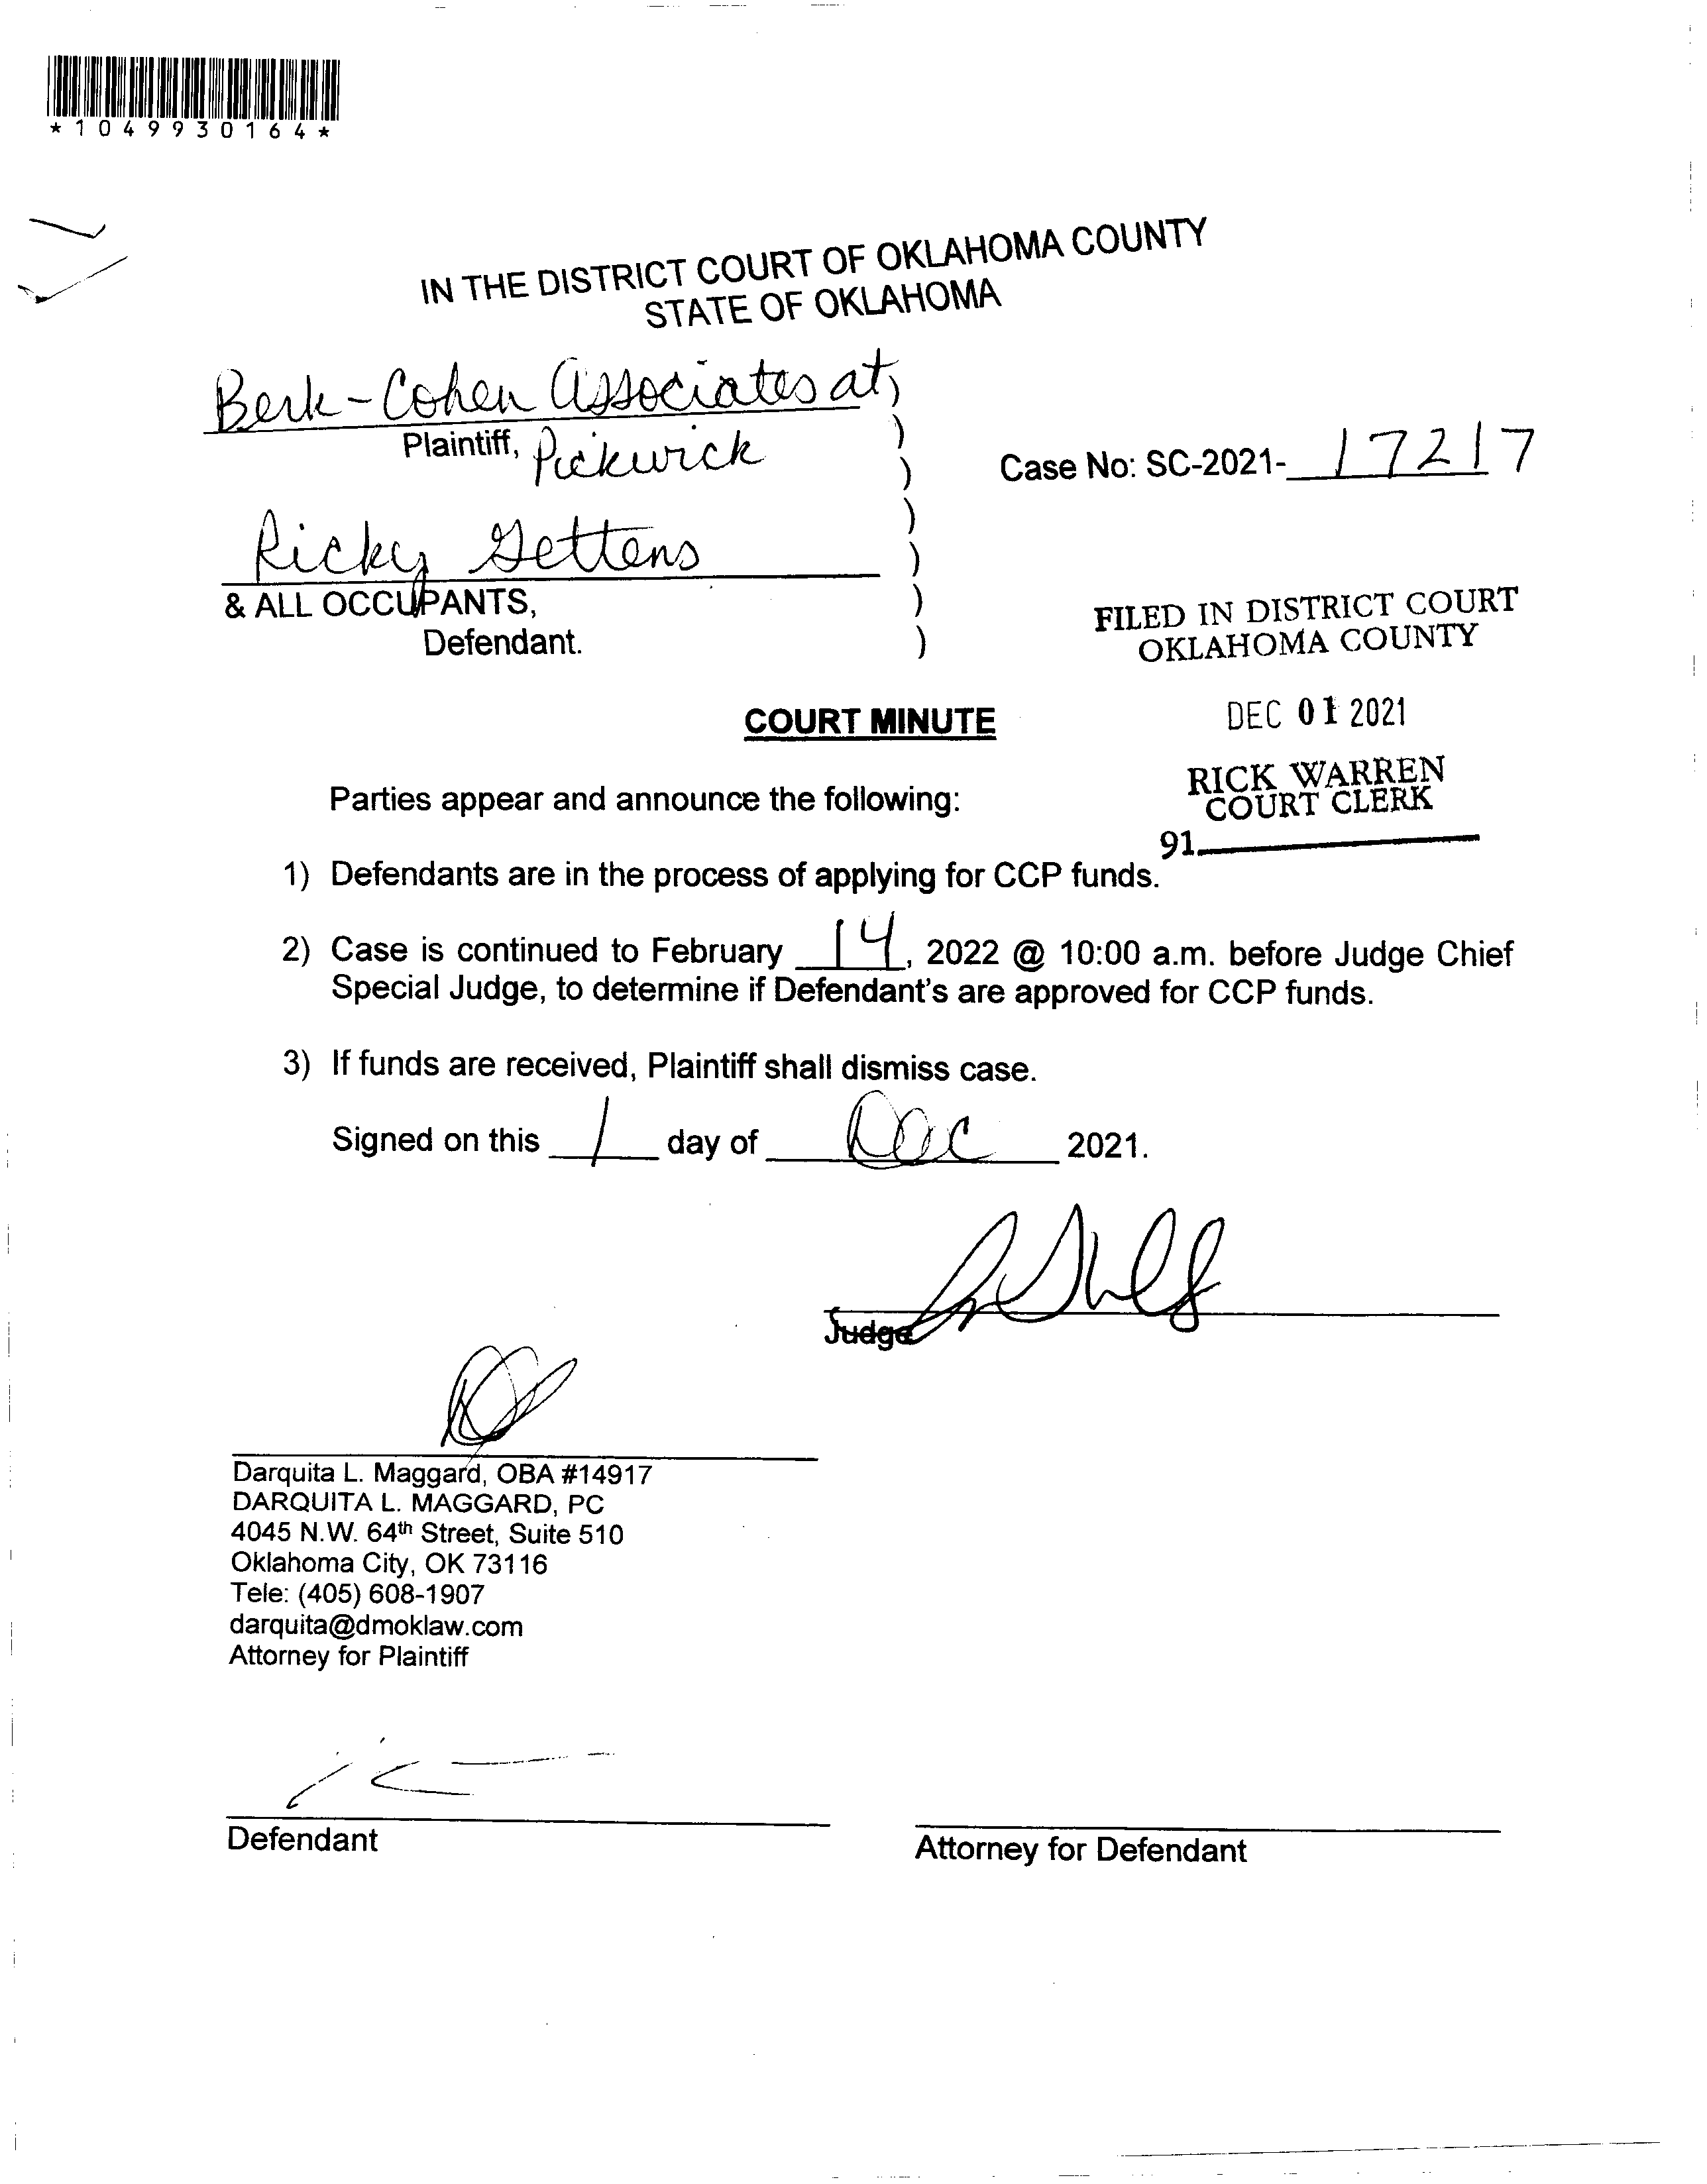 *1049930164*
IN THE DISTRICT COURT OF OKLAHOMA COUNTY
STATE OF OKLAHOMA
Berk-Cohen Associates at,
Plaintiff, Pickwick
)
)
Case No: SC-2021- 17217
)
Ricky Gettens
)
& ALL OCCUPANTS,
)
Defendant.
)
FILED IN DISTRICT COURT
OKLAHOMA COUNTY
COURT MINUTE
DEC 01 2021
RICK WARREN
COURT CLERK
91
Parties appear and announce the following:
1) Defendants are in the process of applying for CCP funds.
2) Case is continued to February 14, 2022 @ 10:00 a.m. before Judge Chief
Special Judge, to determine if Defendant's are approved for CCP funds.
3) If funds are received, Plaintiff shall dismiss case.
Signed on this 1 day of Dec 2021.
Judge
Darquita L. Maggard, OBA #14917
DARQUITA L. MAGGARD, PC
4045 N.W. 64th Street, Suite 510
Oklahoma City, OK 73116
Tele: (405) 608-1907
darquita@dmoklaw.com
Attorney for Plaintiff
Defendant
Attorney for Defendant